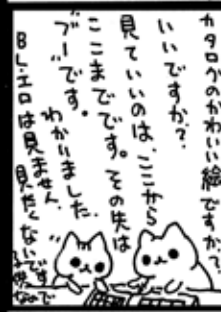 カタログのかわいい絵ですか?、
いいですか?
見ていいのは、ここから
ここまでです。その先は
"ブー"です。
わかりました。
BLエロは見ません、
見たくないです